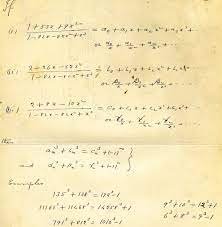 If
(i) (1+53x+9x²)/(1-82x-82x²+x³) = a₀+a₁x+a₂x²+a₃x³+
or α₀/x+α₁/x²+α₂/x³+
(ii) (2-26x-12x²)/(1-82x-82x²+x³) = b₀+b₁x+b₂x²+b₃x³+
or β₀/x+β₁/x²+β₂/x³+
(iii) (2+8x-10x²)/(1-82x-82x²+x³) = c₀+c₁x+c₂x²+c₃x³+
or γ₀/x+γ₁/x²+γ₂/x³+
then
aₙ³+bₙ³ = cₙ³+(-1)ⁿ
and αₙ³+βₙ³ = γₙ³+(-1)ⁿ
Examples
135³+138³ = 172³-1
11161³+11468³ = 14258³+1
791³+812³ = 1010³-1
9³+10³ = 12³+1
6³+8³ = 9³-1